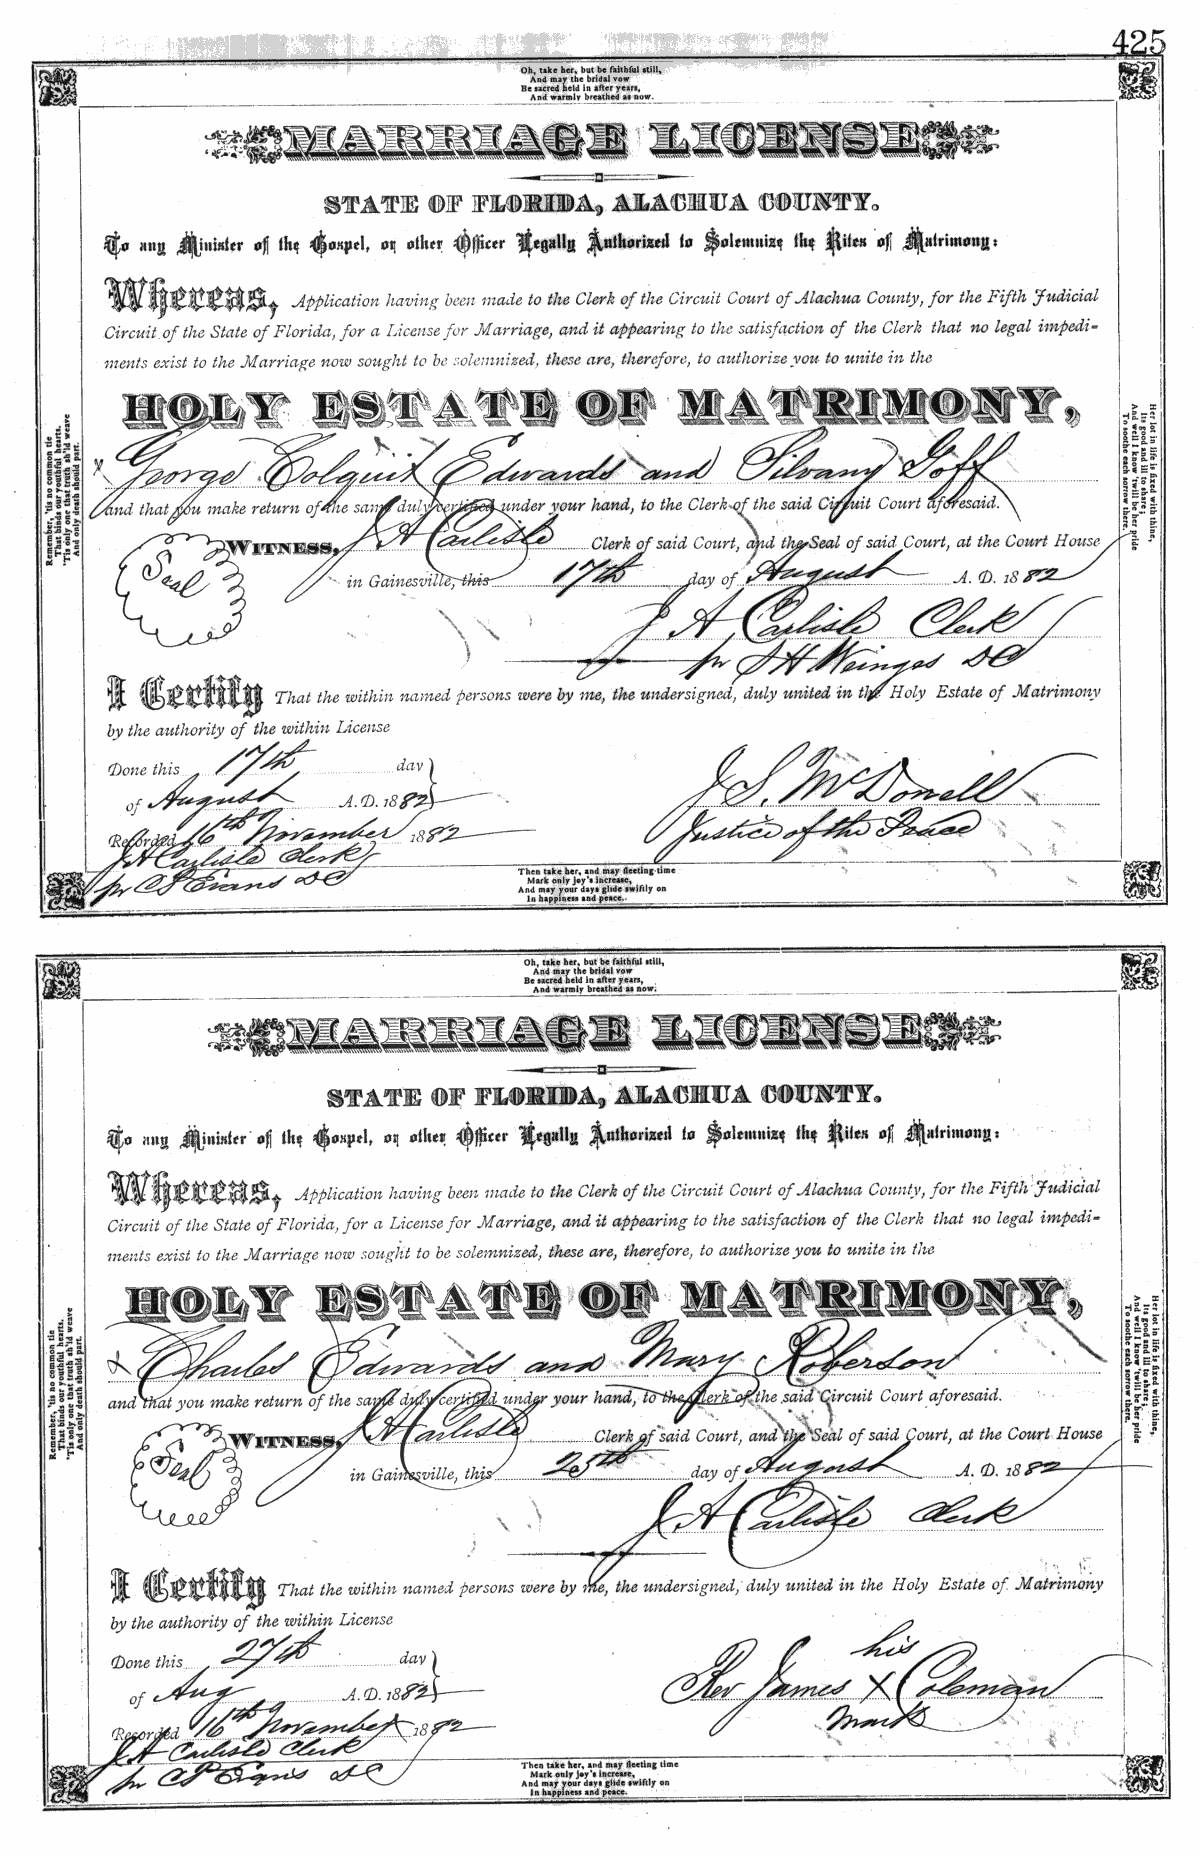 425
Oh, take her, but be faithful still,
And may the bridal vow
Be sacred held in after years,
And warmly breathed as now.
MARRIAGE LICENSE
STATE OF FLORIDA, ALACHUA COUNTY.
To any Minister of the Gospel, or other Officer Legally Authorized to Solemnize the Rites of Matrimony:
Whereas, Application having been made to the Clerk of the Circuit Court of Alachua County, for the Fifth Judicial
Circuit of the State of Florida, for a License for Marriage, and it appearing to the satisfaction of the Clerk that no legal impedi-
ments exist to the Marriage now sought to be solemnized, these are, therefore, to authorize you to unite in the
HOLY ESTATE OF MATRIMONY,
x George Colquit Edwards and Silvany Goff
and that you make return of the same duly certified under your hand, to the Clerk of the said Circuit Court aforesaid.
Seal
WITNESS, J A Carlisle Clerk of said Court, and the Seal of said Court, at the Court House
in Gainesville, this 17th day of August A. D. 1882
J A Carlisle Clerk
pr S H Wienges DC
I Certify That the within named persons were by me, the undersigned, duly united in the Holy Estate of Matrimony
by the authority of the within License
Done this 17th day
of August A.D. 1882
J. S. McDowell
Justice of the Peace
Recorded 16th November 1882
J A Carlisle Clerk
pr C P Evans DC
Then take her, and may fleeting time
Mark only joy's increase,
And may your days glide swiftly on
In happiness and peace.
Remember, 'tis no common tie
That binds our youthful hearts,
'Tis only one that truth sh'ld weave
And only death should part.
Her lot in life is fixed with thine,
Its good and ill to share;
And well I know 'twill be her pride
To soothe each sorrow there.
Oh, take her, but be faithful still,
And may the bridal vow
Be sacred held in after years,
And warmly breathed as now.
MARRIAGE LICENSE
STATE OF FLORIDA, ALACHUA COUNTY.
To any Minister of the Gospel, or other Officer Legally Authorized to Solemnize the Rites of Matrimony:
Whereas, Application having been made to the Clerk of the Circuit Court of Alachua County, for the Fifth Judicial
Circuit of the State of Florida, for a License for Marriage, and it appearing to the satisfaction of the Clerk that no legal impedi-
ments exist to the Marriage now sought to be solemnized, these are, therefore, to authorize you to unite in the
HOLY ESTATE OF MATRIMONY,
x Charles Edwards and Mary Roberson
and that you make return of the same duly certified under your hand, to the Clerk of the said Circuit Court aforesaid.
Seal
WITNESS, J A Carlisle Clerk of said Court, and the Seal of said Court, at the Court House
in Gainesville, this 25th day of August A. D. 1882
J A Carlisle Clerk
I Certify That the within named persons were by me, the undersigned, duly united in the Holy Estate of Matrimony
by the authority of the within License
Done this 27th day
of Aug A.D. 1882
his
Rev James X Coleman
mark
Recorded 16th November 1882
J A Carlisle Clerk
pr C P Evans DC
Then take her, and may fleeting time
Mark only joy's increase,
And may your days glide swiftly on
In happiness and peace.
Remember, 'tis no common tie
That binds our youthful hearts,
'Tis only one that truth sh'ld weave
And only death should part.
Her lot in life is fixed with thine,
Its good and ill to share;
And well I know 'twill be her pride
To soothe each sorrow there.